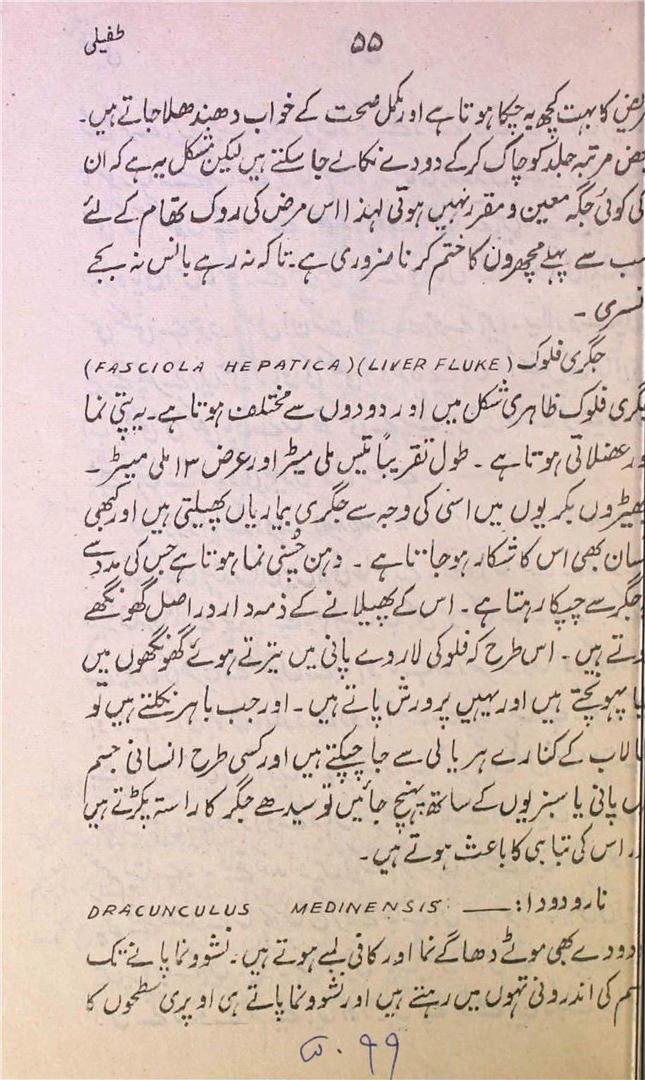 ۵۵
طفیلی
مریض کا بہت کچھ یہ چپکا ہوتا ہے اور مکمل صحت کے خواب دھندھلا جاتے ہیں۔
بعض مرتبہ جلد کو چاک کرکے دودے نکالے جا سکتے ہیں لیکن مشکل یہ ہے کہ ان
کی کوئی جگہ معین و مقرر نہیں ہوتی لہذا اس مرض کی روک تھام کے لئے
سب سے پہلے مچھرون کا ختم کرنا ضروری ہے۔ تاکہ نہ رہے بانس نہ بجے
بنسری ۔
جگری فلوک (FASCIOLA HEPATICA) (LIVER FLUKE)
جگری فلوک ظاہری شکل میں اور دودوں سے مختلف ہوتا ہے۔ یہ پتی نما
اور عضلاتی ہوتا ہے ۔ طول تقریباً تیس ملی میٹر اور عرض ۱۳ ملی میٹر ۔
بھیڑوں بکریوں میں اسی کی وجہ سے جگری بیماریاں پھیلتی ہیں اور کبھی
انسان بھی اس کا شکار ہو جاتا ہے ۔ دہن چُسنی نما ہوتا ہے جس کی مدد سے
جگر سے چپکا رہتا ہے۔ اس کے پھیلانے کے ذمہ دار دراصل گھونگھے
ہوتے ہیں ۔ اس طرح کہ فلو کی لاروے پانی میں تیرتے ہوئے گھونگھوں میں
جا پہونچتے ہیں اور یہیں پرورش پاتے ہیں ۔ اور جب باہر نکلتے ہیں تو
تالاب کے کنارے ہریالی سے جا چپکتے ہیں اور کسی طرح انسانی جسم
میں پانی یا سبزیوں کے ساتھ پہنچ جائیں تو سیدھے جگر کا راستہ پکڑتے ہیں
اور اس کی تباہی کا باعث ہوتے ہیں۔
نارو دودا:۔ —— DRACUNCULUS MEDINENSIS
دودے بھی موٹے دھاگے نما اور کافی لمبے ہوتے ہیں۔ نشوونما پانے تک
جسم کی اندرونی تہوں میں رہتے ہیں اور نشوونما پاتے ہی اوپری سطحوں کا